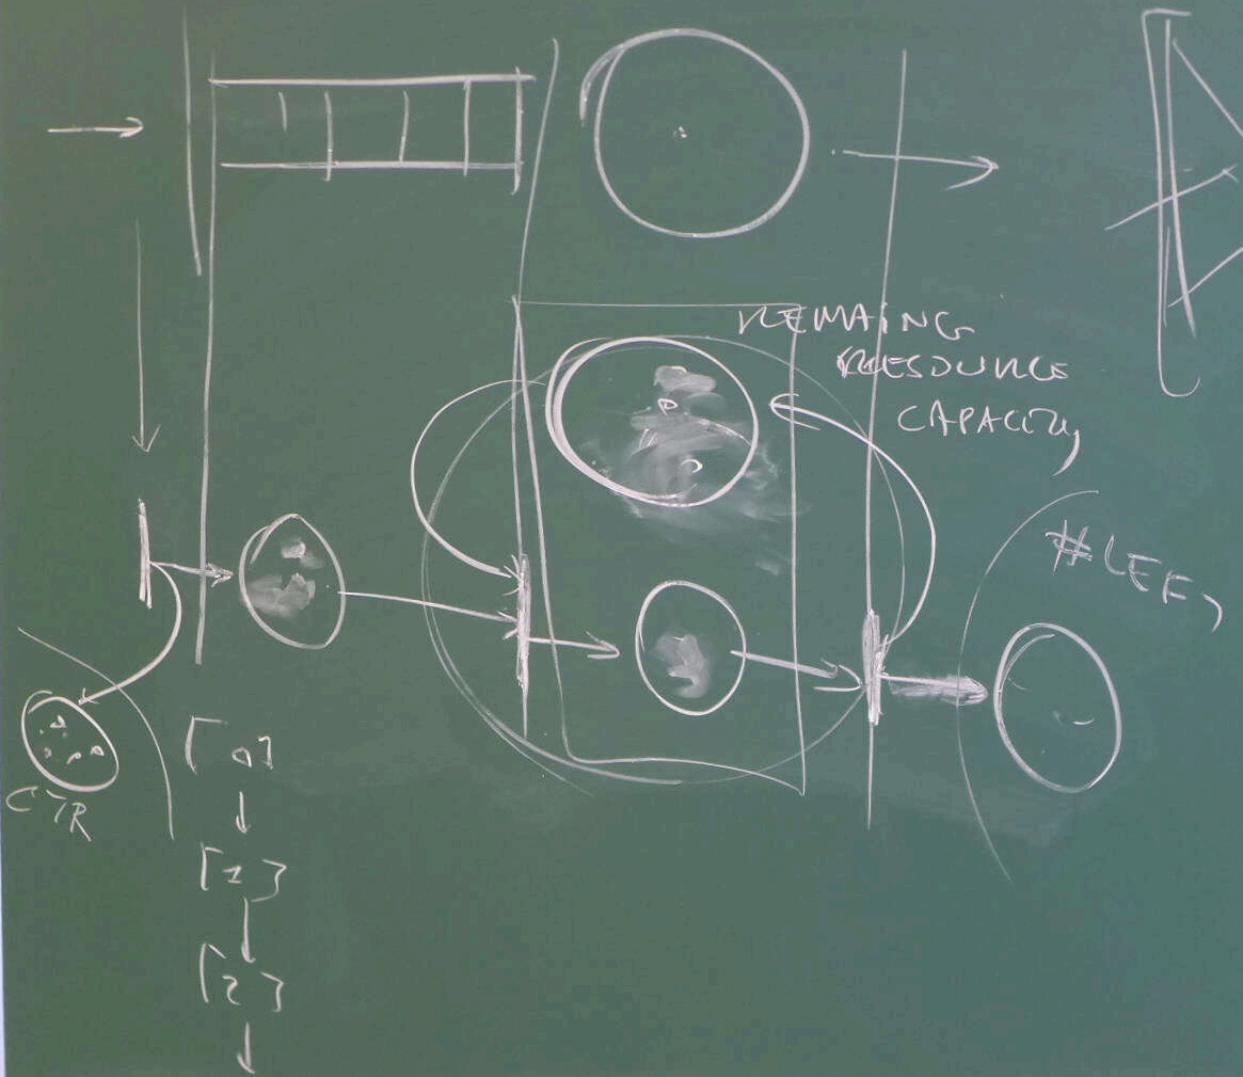 REMAING
RESOURCE
CAPACITY
#LEFT
CTR
[0]
[1]
[2]